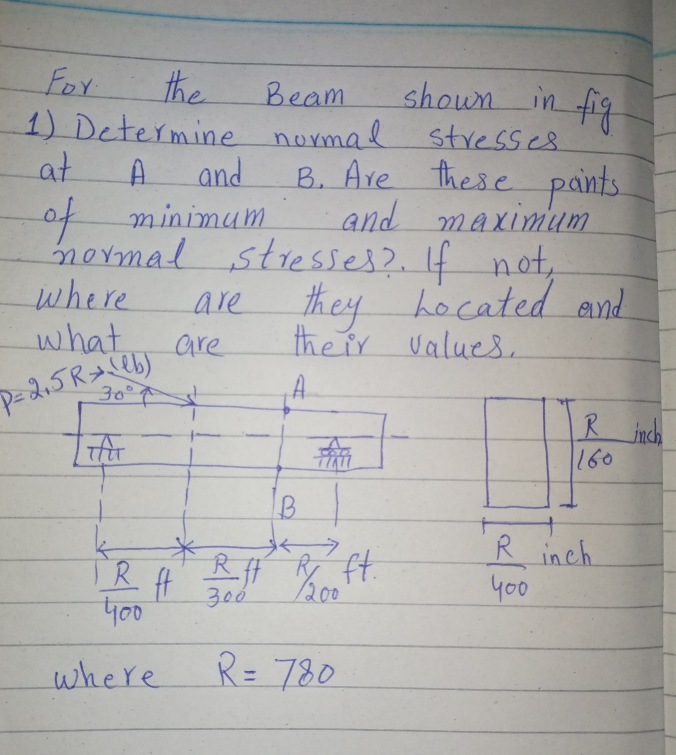 For the Beam shown in fig
1) Determine normal stresses
at A and B. Are these points
of minimum and maximum
normal stresses?. If not,
where are they located and
what are their values.
P=2,5R→(lb)
30°
A
B
R/400 ft R/300 ft R/200 ft.
R/160 inch
R/400 inch
where R= 780